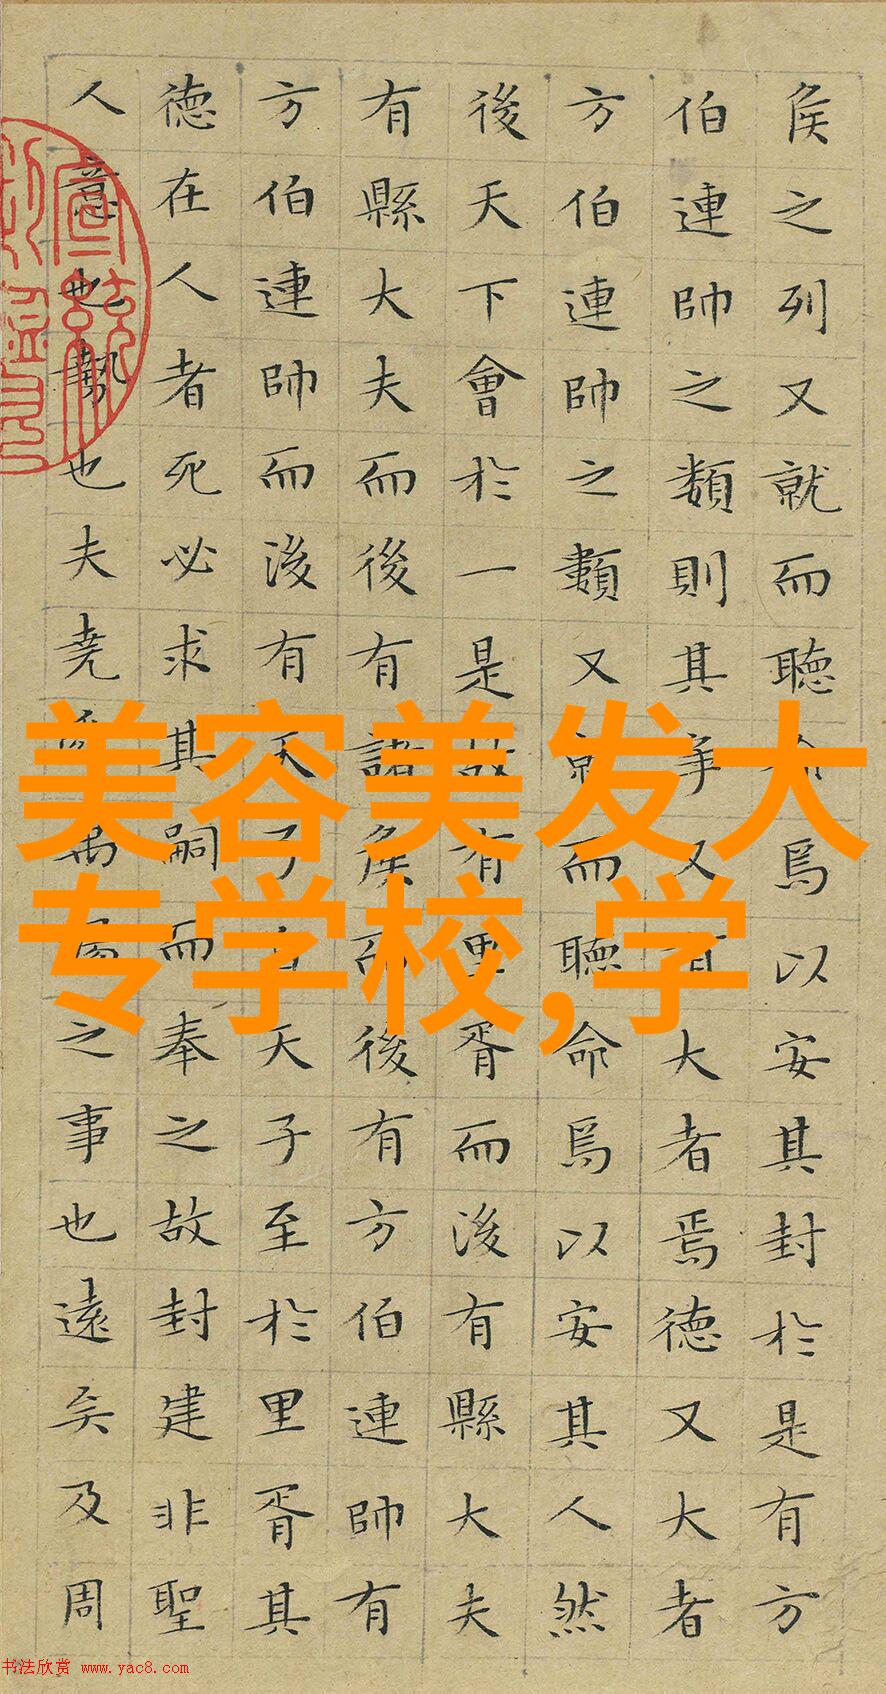 侯之列又就而聽命焉以安其封於是有方
伯連帥之類則其爭又有大者焉德又大者
方伯連帥之類又就而聽命焉以安其人然
後天下會於一是故有里胥而後有縣大夫
有縣大夫而後有諸侯而後有方伯連帥有
方伯連帥而後有天子自天子至於里胥其
德在人者死必求其嗣而奉之故封建非聖
人意也勢也夫堯舜禹湯之事也遠矣及周
美容美发大
专学校,学
书法欣赏 www.yac8.com